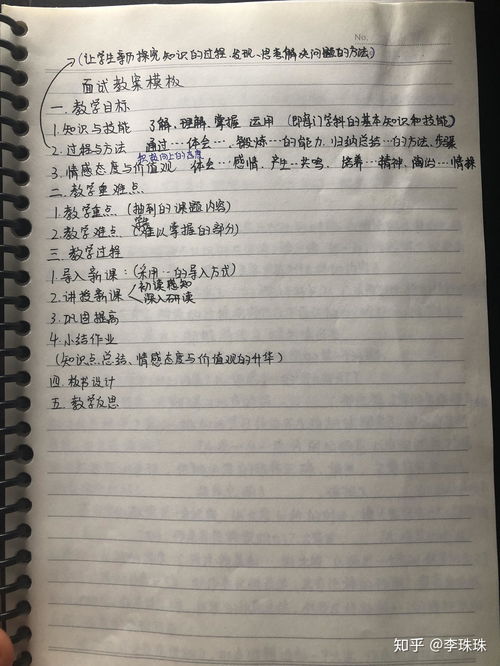 No.
(让学生亲历探究知识的过程,发现、思考解决问题的方法)
面试教案模板
一.教学目标
1.知识与技能 了解、理解、掌握 运用 (即每门学科的基本知识和技能)
2.过程与方法 通过…体会…、锻炼…的能力,归纳总结…的方法、步骤
积极向上的态度
3.情感态度与价值观 体会…感情、产生…共鸣, 培养…精神、陶冶…情操
二.教学重难点
1.教学重点 (抽到的课题内容)
学生
2.教学难点 (难以掌握的部分)
三.教学过程
1.导入新课:(采用…的导入方式)
2.讲授新课 初读感知
深入研读
3.巩固提高
4.小结作业
(知识点总结、情感态度与价值观的升华)
四.板书设计
五.教学反思
知乎 @李珠珠